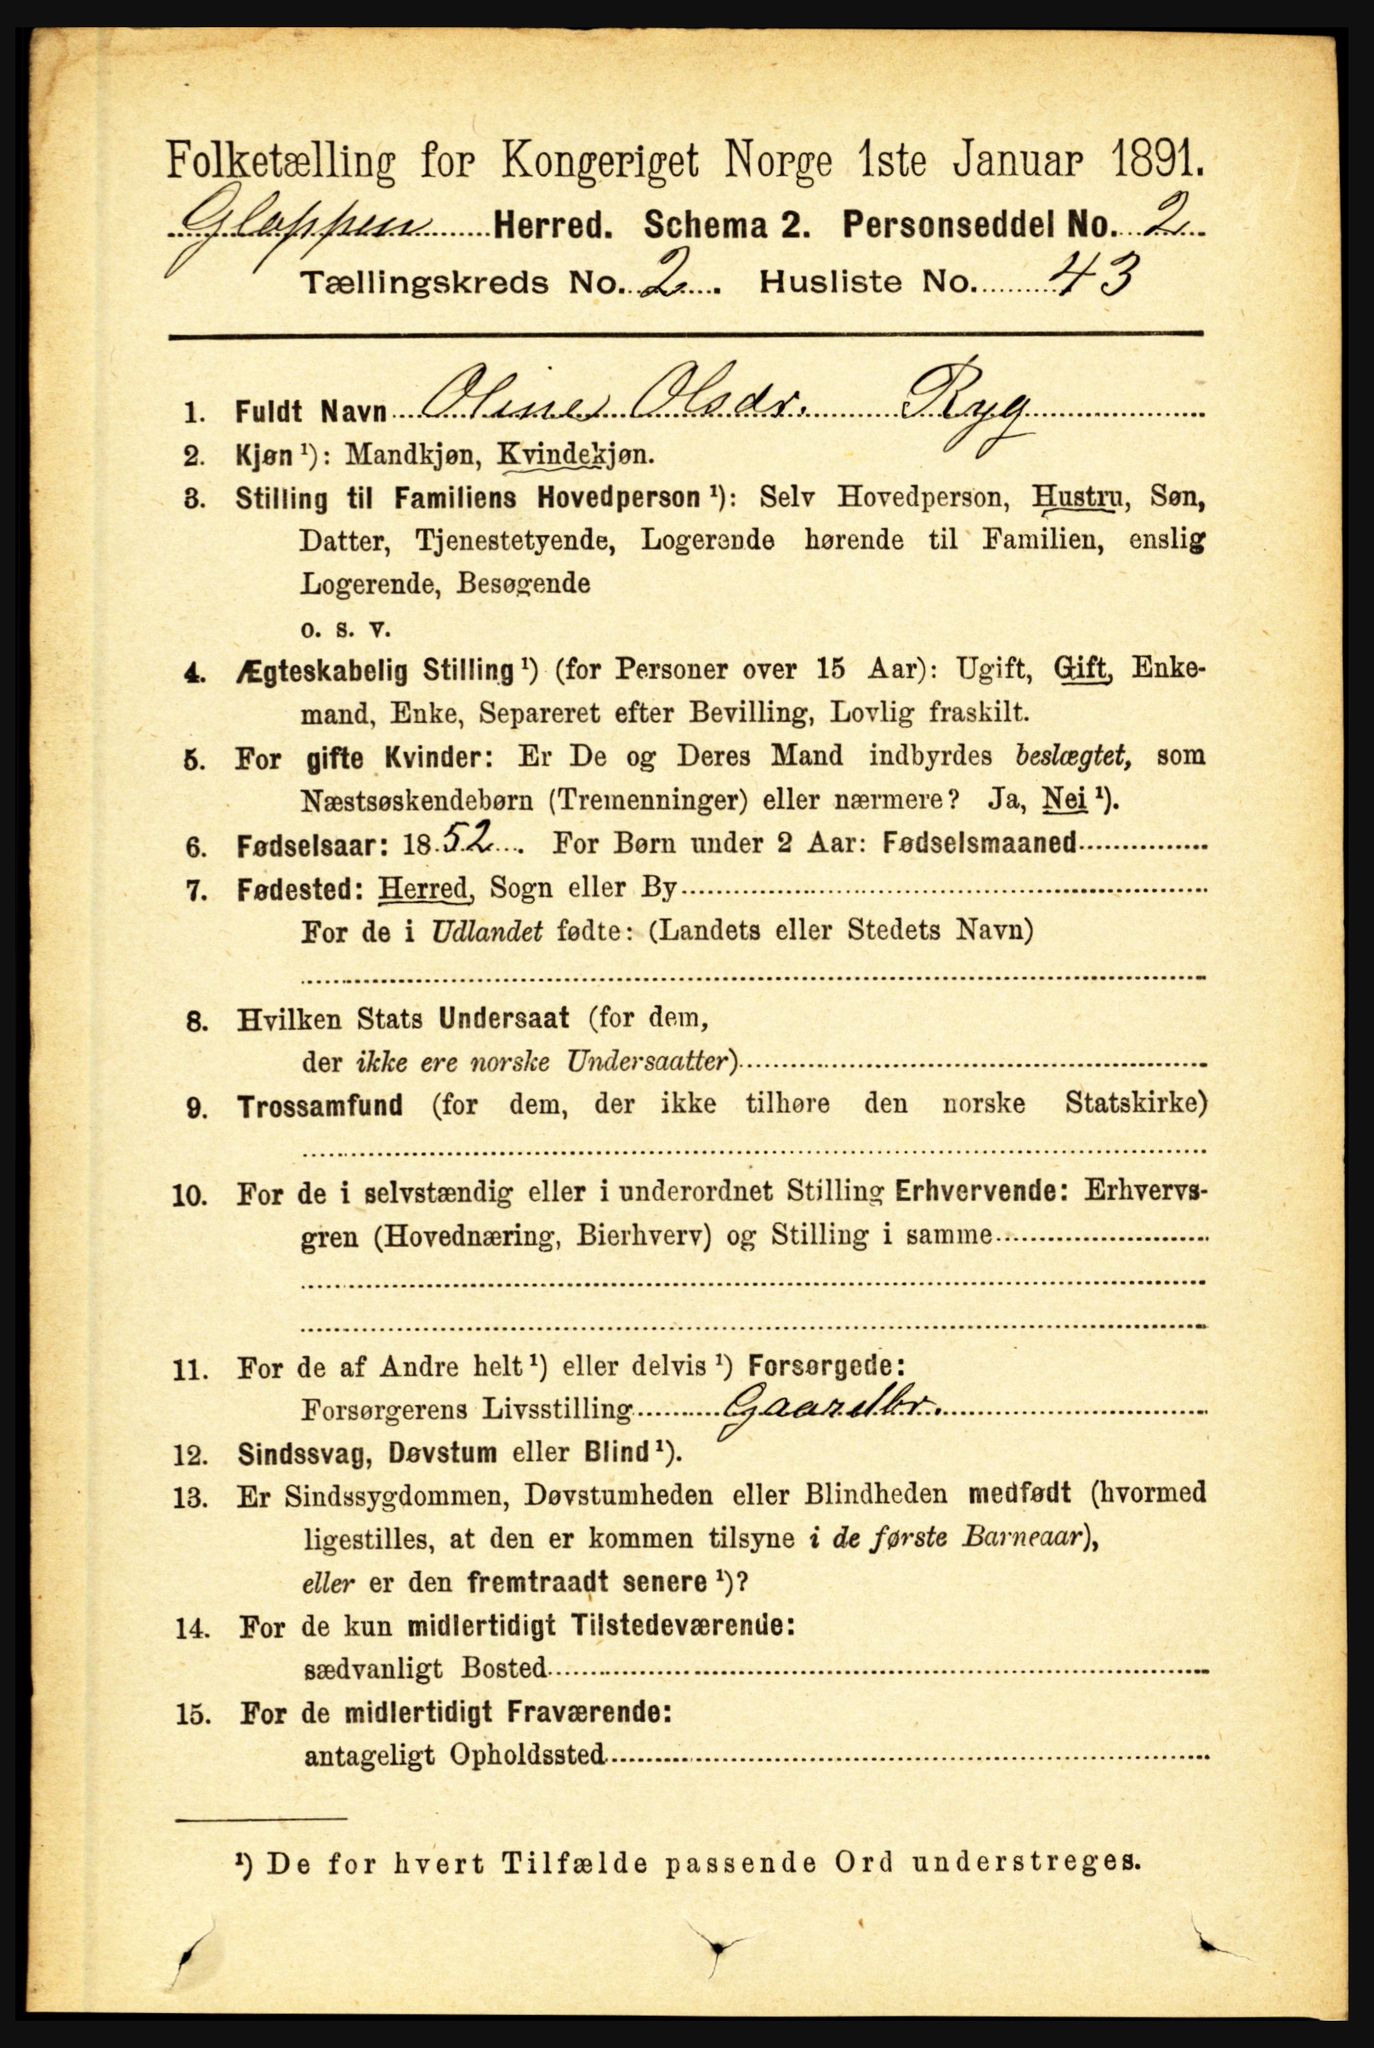 Folketælling for Kongeriget Norge 1ste Januar 1891.
Gloppen Herred. Schema 2. Personseddel No. 2
Tællingskreds No. 2. Husliste No. 43
1. Fuldt Navn Oline Olsdr. Ryg
2. Kjøn ¹): Mandkjøn, Kvindekjøn.
3. Stilling til Familiens Hovedperson ¹): Selv Hovedperson, Hustru, Søn,
Datter, Tjenestetyende, Logerende hørende til Familien, enslig
Logerende, Besøgende
o. s. v.
4. Ægteskabelig Stilling ¹) (for Personer over 15 Aar): Ugift, Gift, Enke-
mand, Enke, Separeret efter Bevilling, Lovlig fraskilt.
5. For gifte Kvinder: Er De og Deres Mand indbyrdes beslægtet, som
Næstsøskendebørn (Tremenninger) eller nærmere? Ja, Nei ¹).
6. Fødselsaar: 1852. For Børn under 2 Aar: Fødselsmaaned
7. Fødested: Herred, Sogn eller By
For de i Udlandet fødte: (Landets eller Stedets Navn)
8. Hvilken Stats Undersaat (for dem,
der ikke ere norske Undersaatter)
9. Trossamfund (for dem, der ikke tilhøre den norske Statskirke)
10. For de i selvstændig eller i underordnet Stilling Erhvervende: Erhvervs-
gren (Hovednæring, Bierhverv) og Stilling i samme
11. For de af Andre helt ¹) eller delvis ¹) Forsørgede:
Forsørgerens Livsstilling Gaardbr.
12. Sindssvag, Døvstum eller Blind ¹).
13. Er Sindssygdommen, Døvstumheden eller Blindheden medfødt (hvormed
ligestilles, at den er kommen tilsyne i de første Barneaar),
eller er den fremtraadt senere ¹)?
14. For de kun midlertidigt Tilstedeværende:
sædvanligt Bosted
15. For de midlertidigt Fraværende:
antageligt Opholdssted
¹) De for hvert Tilfælde passende Ord understreges.